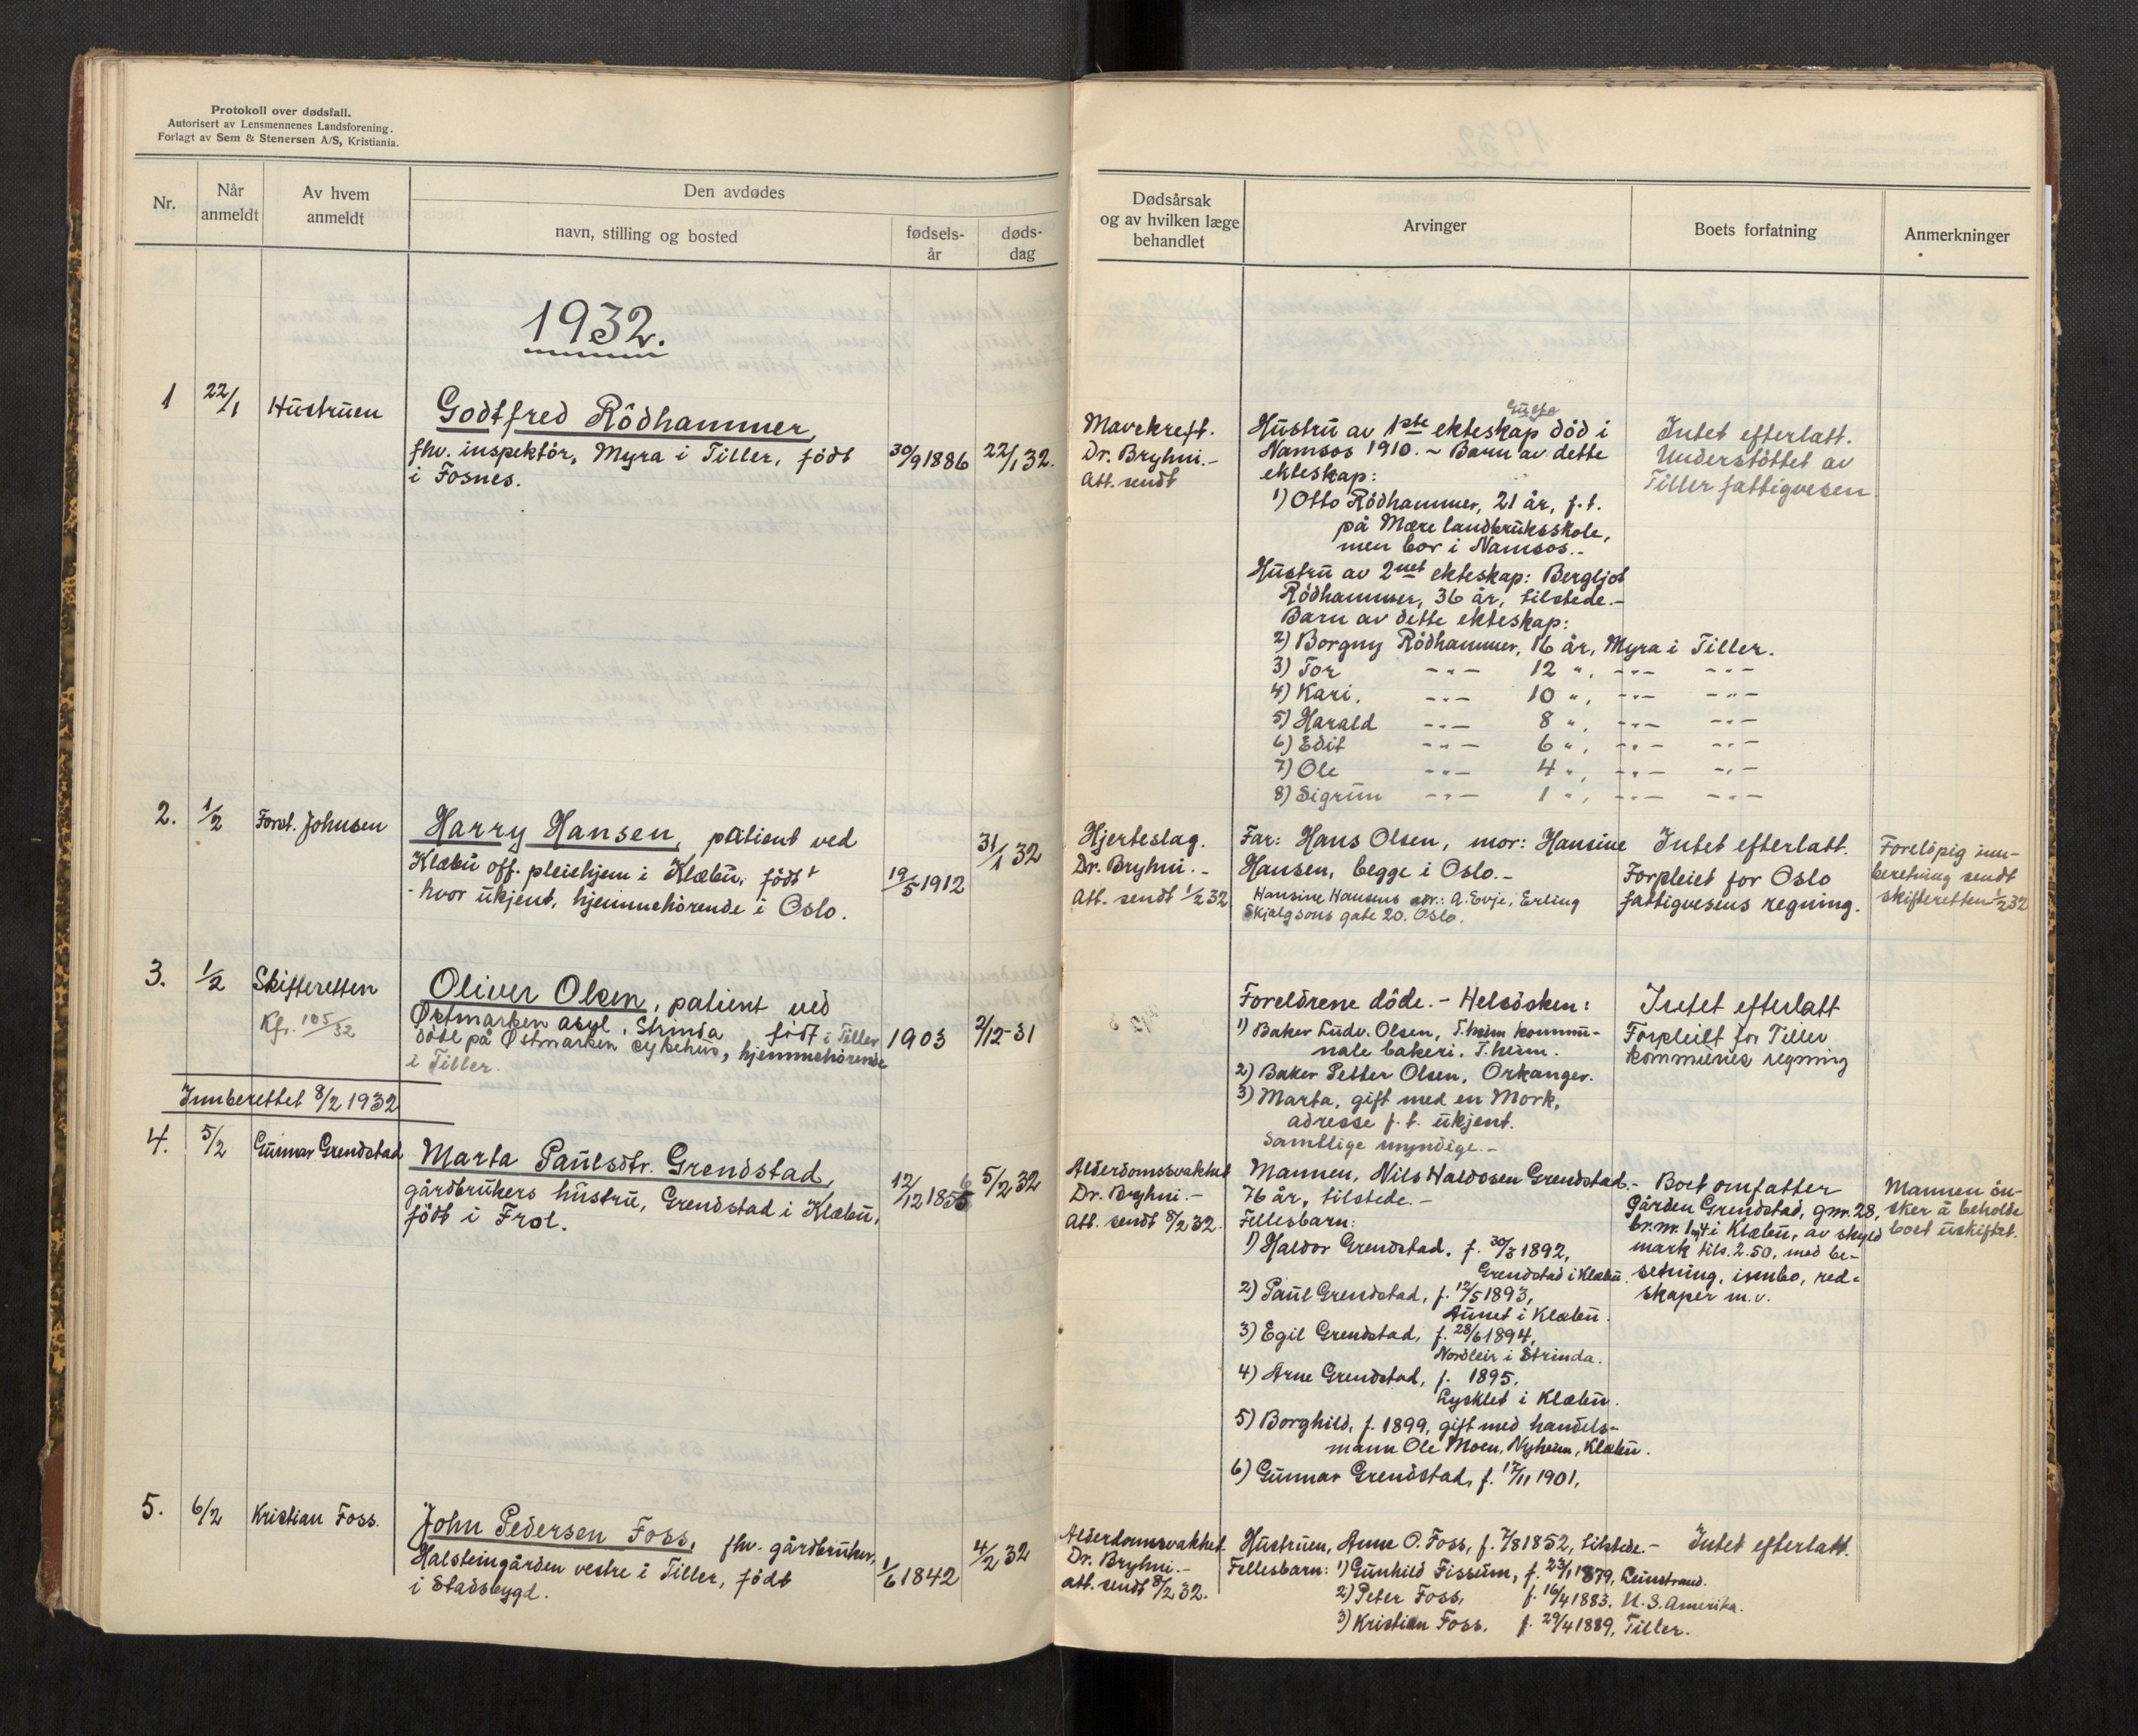 Protokoll over dødsfall.
Autorisert av Lensmennenes Landsforening.
Forlagt av Sem & Stenersen A/S, Kristiania.
Nr.
Når
anmeldt
Av hvem
anmeldt
Den avdødes
navn, stilling og bosted
fødsels-
år
døds-
dag
Dødsårsak
og av hvilken læge
behandlet
Arvinger
Boets forfatning
Anmerkninger
1932.
1
22/1
Hustruen
Godtfred Rödhammer,
fhv. inspektör, Myra i Tiller, födt
i Fosnes.
30/9 1886
22/1 32.
Mavekreft.
Dr. Bryhni.-
Att. sendt
Hustru av 1ste ekteskap död i
Namsos 1910. - Barn av dette
ekteskap:
1) Otto Rödhammer, 21 år, f.t.
på Mære landbruksskole,
men bor i Namsos.-
Hustru av 2net ekteskap: Bergljot
Rödhammer, 36 år, tilstede.-
Barn av dette ekteskap:
2) Borgny Rödhammer, 16 år, Myra i Tiller.
3) Tor -"- 12 ", -"- -"-
4) Kari, -"- 10 ", -"- -"-
5) Harald -"- 8 ", -"- -"-
6) Edit -"- 6 ", -"- -"-
7) Ole -"- 4 ", -"- -"-
8) Sigrun -"- 1 ", -"- -"-
Intet efterlatt.
Understöttet av
Tiller fattigvesen.
2.
1/2
Forst. Johnsen
Harry Hansen, patient ved
Klæbu off. pleiehjem i Klæbu, födt
- hvor ukjent, hjemmehörende i Oslo.
19/5 1912
31/1 32
Hjerteslag.
Dr. Bryhni.-
Att. sendt 1/2 32
Far: Hans Olsen, mor: Hansine
Hansen, begge i Oslo.-
Hansine Hansens adr.: A. Evje, Erling
Skjalgsons gate 20. Oslo.
Intet efterlatt.
Forpleiet for Oslo
fattigvesens regning.
Forelöpig inn-
beretning sendt
skifteretten 1/2 32
3.
1/2
Skifteretten
Kfr. 105/32
Oliver Olsen, patient ved
Østmarken asyl, Strinda födt i Tiller
död på Østmarken sykehus, hjemmehörende
i Tiller.
1903
2/12-31
Foreldrene döde. - Helsösken:
1) Baker Ludv. Olsen, T.heim kommu-
nale bakeri, T.heim.
2) Baker Petter Olsen, Orkanger.
3) Marta, gift med en Mork,
adresse f.t. ukjent.
Samtlige myndige.-
Intet efterlatt
Forpleiet for Tiller
kommunes regning
Innberettet 8/2 1932
4.
5/2
Gunnar Grendstad
Marta Paulsdtr. Grendstad,
gårdbrukers hustru, Grendstad i Klæbu,
födt i Frol.
12/12 1856
5/2 32
Alderdomssvakhet
Dr. Bryhni.-
Att. sendt 8/2 32.
Mannen, Nils Haldosen Grendstad.-
76 år, tilstede.-
Fellesbarn:
1) Haldor Grendstad, f. 30/3 1892,
Grendstad i Klæbu.
2) Paul Grendstad, f. 12/5 1893,
Aunet i Klæbu.
3) Egil Grendstad, f. 28/6 1894,
Nordleir i Strinda.
4) Arne Grendstad, f. 1895,
Lysklet i Klæbu.
5) Borghild, f. 1899, gift med handels-
mann Ole Moen, Nyheim, Klæbu.
6) Gunnar Grendstad, f. 17/11 1901,
Boet omfatter
gården Grendstad, gnr. 28,
br.nr. 1 og 4 i Klæbu, av skyld
mark tils. 2.50, med be-
setning, innbo, red-
skaper m.v.
Mannen ön-
sker å beholde
boet uskiftet.
5.
6/2
Kristian Foss.
John Pedersen Foss, fhv. gårdbruker,
Halsteingården vestre i Tiller, födt
i Stadsbygd.
1/6 1842
4/2 32
Alderdomssvakhet
Dr. Bryhni.-
att. sendt 8/2 32.
Hustruen, Anne O. Foss, f. 7/8 1852, tilstede.-
Fellesbarn: 1) Gunhild Fissum, f. 23/1 1879, Leinstrand.
2) Peter Foss, f. 16/4 1883, U.S. Amerika.
3) Kristian Foss, f. 29/4 1889, Tiller.
Intet efterlatt.